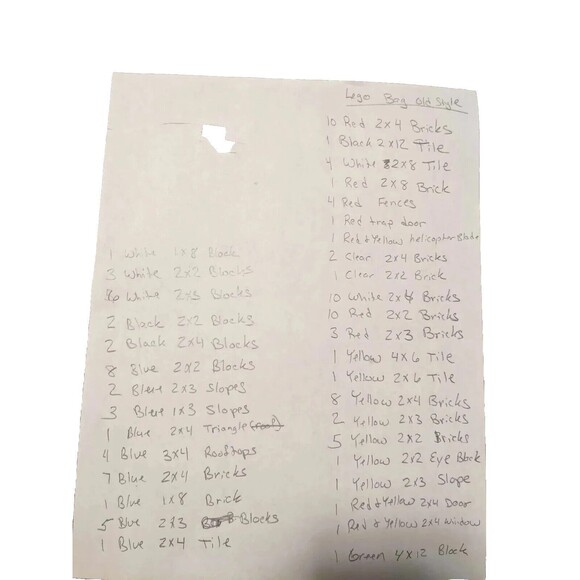 Lego Bag Old Style
10 Red 2x4 Bricks
1 Black 2x12 Tile
4 White 2x8 Tile
1 Red 2x8 Brick
4 Red Fences
1 Red trap door
1 Red & Yellow helicopter Blade
2 Clear 2x4 Bricks
1 Clear 2x2 Brick
10 White 2x4 Bricks
10 Red 2x2 Bricks
3 Red 2x3 Bricks
1 Yellow 4x6 Tile
1 Yellow 2x6 Tile
8 Yellow 2x4 Bricks
2 Yellow 2x3 Bricks
5 Yellow 2x2 Bricks
1 Yellow 2x2 Eye Block
1 Yellow 2x3 Slope
1 Red & Yellow 2x4 Door
1 Red & Yellow 2x4 Window
1 Green 4x12 Block
1 White 1x8 Block
3 White 2x2 Blocks
White 2x3 Blocks
2 Black 2x2 Blocks
2 Black 2x4 Blocks
8 Blue 2x2 Blocks
2 Blue 2x3 Slopes
3 Blue 1x3 Slopes
1 Blue 2x4 Triangle
4 Blue 3x4 Rooftops
7 Blue 2x4 Bricks
1 Blue 1x8 Brick
5 Blue 2x3 Blocks
1 Blue 2x4 Tile